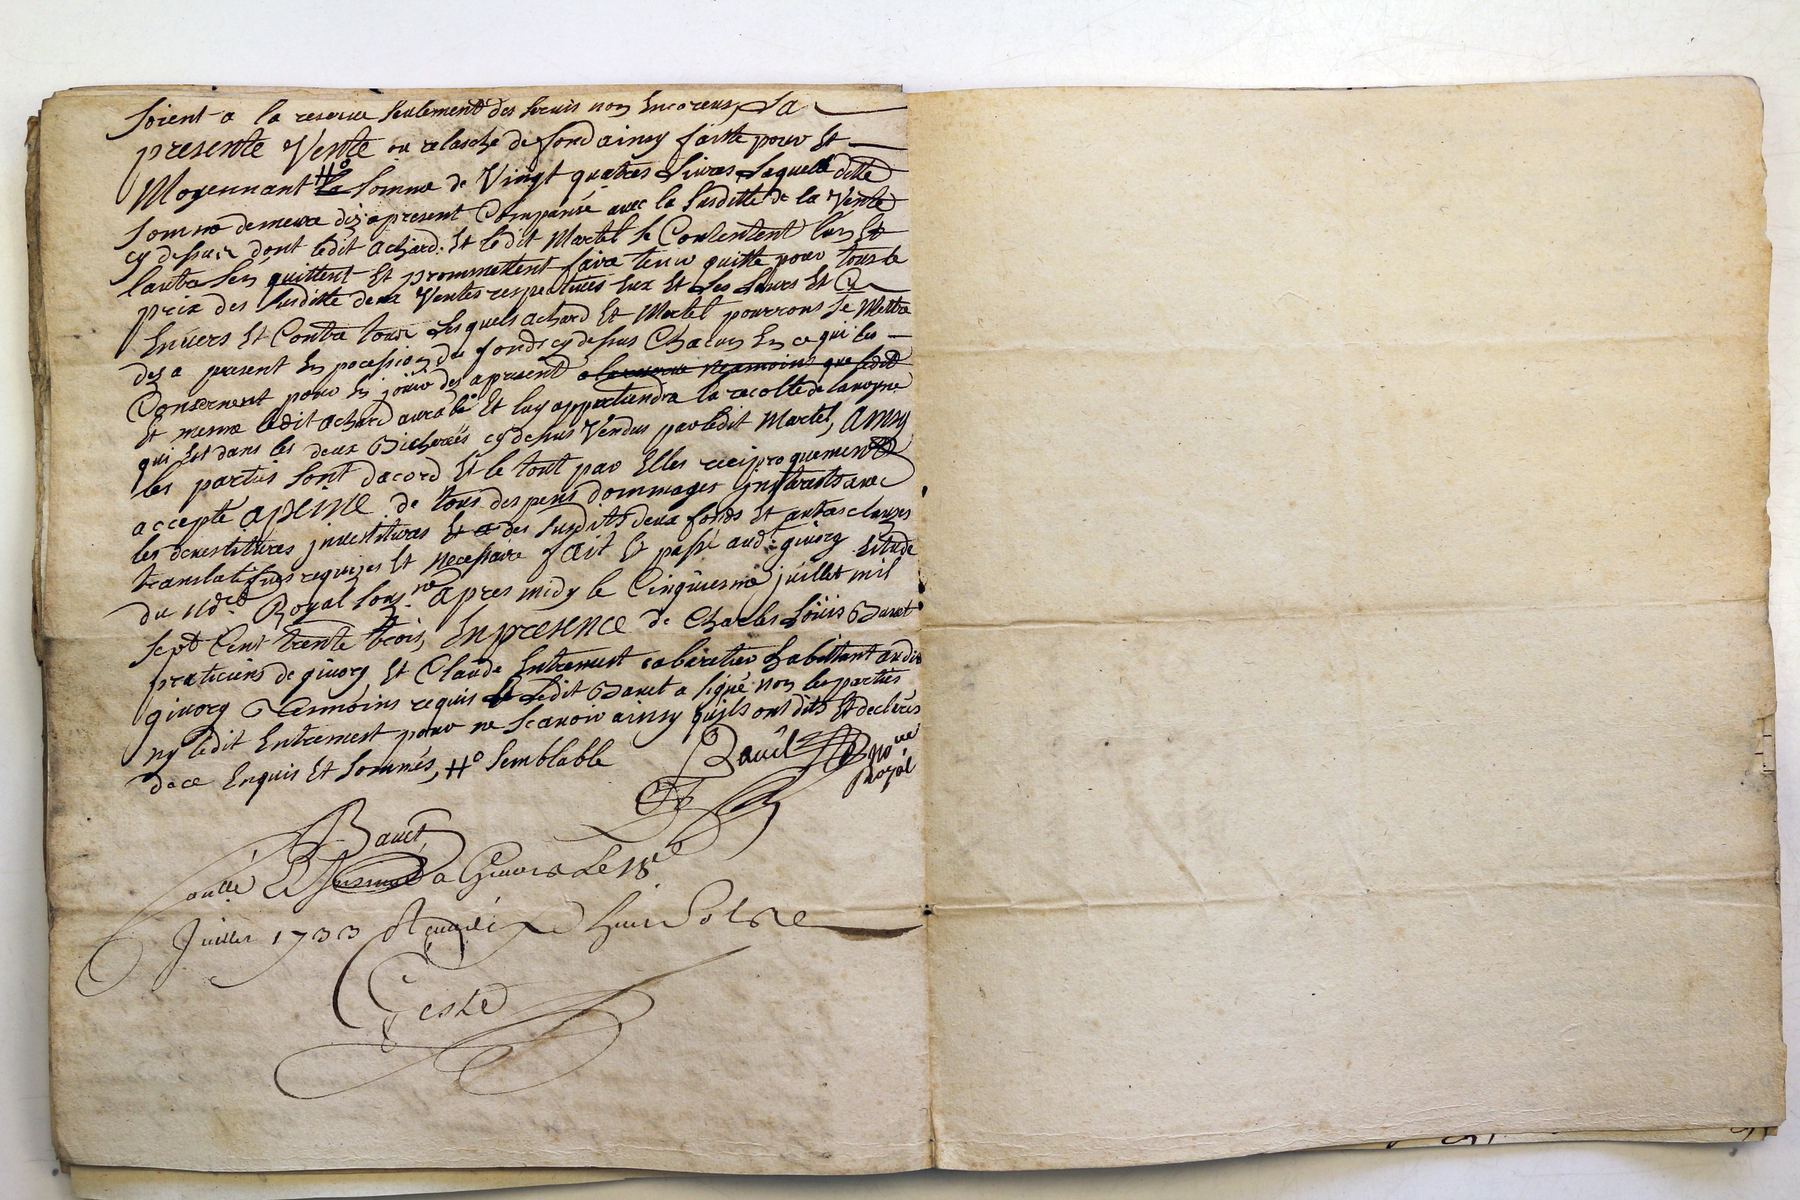 soient a la reserve seulement des servis non encoreus, La
presente Vente ou relasche de fond ainsy faitte pour Et
Moyennant H° la somme de Vingt quatres Livres Laquelle ditte
somme demeure dez apresent Compansé avec la susditte de la Vente
cy dessus dont ledit achard Et ledit Martel se Contentent lun Et
lautre sen quittent Et prommettent faire tenir quitte pour tous le
prix des susditte deux Ventes respectives Eux Et Les Leurs Et Cy
Envers Et Contre tous Lesquels achard Et Martel pourrons se Mettre
des a present En pocession des fonds cy dessus Chacun En ce qui les
Consernent pour En jouir des apresent a la reserve neamoins que ledit
Et mesme ledit achard aura Et luy appartiendra la recolte de lavoyne
qui Est dans les deux Bicherées cy dessus Vendus par ledit Martel, Ainsy
les parties sont dacord Et le tout par Elles reciproquement
accepté apeine de tous despens dommages interests avec
les devestitures investitures Et des susdits deux fonds Et autres clauses
translatifves requizes Et necessaire fait Et passé aud. givorg Estude
du nore Royal sousne apres midy le Cinquiesme juillet mil
sept Cent trente trois, En presence de Charles Loüis Bauet
praticiens de givorg Et Claude Entremest cabaretier habittant audit
givorg Temoins requis Ledit Bauet a signé non les parties
ny ledit Entremest pour ne scavoir ainsy quils ont dits Et declarés
de ce Enquis Et sommés, H° semblable
Bauet nore
Royal
Bauet
a Givors Le 18e
Juillet 1733 Receu dix huit sols
Geste